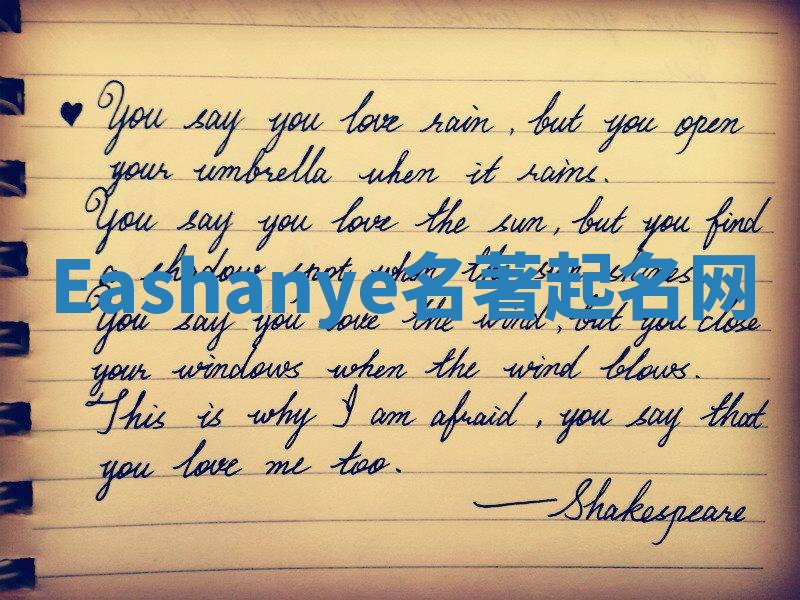 ♥ You say you love rain, but you open
your umbrella when it rains.
You say you love the sun, but you find
a shadow spot when the sun shines.
Eashanye名著起名网
You say you love the wind, but you close
your windows when the wind blows.
This is why I am afraid, you say that
you love me too.
—Shakespeare